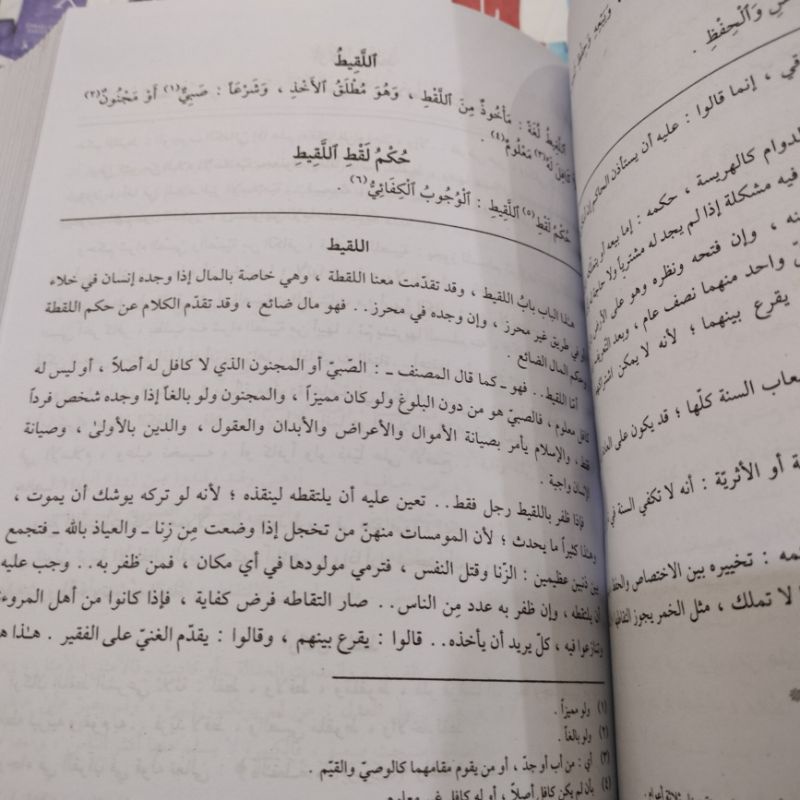 اَللَّقِيطُ
اَللَّقِيطُ لُغَةً : مَأْخُوذٌ مِنَ اللَّقْطِ ، وَهُوَ مُطْلَقُ اَلأَخْذِ ، وَشَرْعًا : صَبِيٌّ(١) أَوْ مَجْنُونٌ(٢)
كَافِلَ لَهُ(٣) مَعْلُومٌ(٤) .
حُكْمُ لَقْطِ اَللَّقِيطِ
حُكْمُ لَقْطِ(٥) اَللَّقِيطِ : اَلْوُجُوبُ اَلْكِفَائِيُّ(٦) .
اللقيط
هذا الباب بابُ اللقيط ، وقد تقدّمت معنا اللقطة ، وهي خاصة بالمال إذا وجده إنسان في خلاء
أو في طريق غير محرز ، وإن وجده في محرز . . فهو مال ضائع ، وقد تقدّم الكلام عن حكم اللقطة
وحكم المال الضائع .
أما اللقيط . . فهو ـ كما قال المصنف ـ : الصّبيّ أو المجنون الذي لا كافل له أصلاً ، أو ليس له
كافل معلوم ، فالصبيّ هو من دون البلوغ ولو كان مميزاً ، والمجنون ولو بالغاً إذا وجده شخص فرداً
فقط ، والإسلام يأمر بصيانة الأموال والأعراض والأبدان والعقول ، والدين بالأولىٰ ، وصيانة
الإنسان واجبة .
فإذا ظفر باللقيط رجل فقط . . تعين عليه أن يلتقطه لينقذه ؛ لأنه لو تركه يوشك أن يموت ،
وهذا كثيراً ما يحدث ؛ لأن المومسات منهنّ من تخجل إذا وضعت مِن زنا ـ والعياذ بالله ـ فتجمع
بين ذنبين عظيمين : الزّنا وقتل النفس ، فترمي مولودها في أي مكان ، فمن ظفر به . . وجب عليه
أن يلتقطه ، وإن ظفر به عدد مِن الناس . . صار التقاطه فرض كفاية ، فإذا كانوا من أهل المروءة
وتنازعوا فيه ، كلّ يريد أن يأخذه . . قالوا : يقرع بينهم ، وقالوا : يقدّم الغنيّ على الفقير . هذا
(١) ولو مميزاً .
(٢) ولو بالغاً .
(٣) أي : من أب أو جدّ ، أو من يقوم مقامهما كالوصيّ والقيّم .
(٤) بأن لم يكن كافل أصلاً ، أو له كافل غير معلوم
وَالْحِفْظِ .
، إنما قالوا : عليه أن يستأذن الحاكم
الدوام كالهريسة ، حكمه : إما بيعه
فيه مشكلة إذا لم يجد له مشترياً ولا
، وإن فتحه ونظره وهو على الأرض
واحد منهما نصف عام ، وبعد التعريف
يقرع بينهما ؛ لأنه لا يمكن اشتراكهم
السنة كلّها ؛ قد يكون على
أو الأثريّة : أنه لا تكفي السنة في
: تخييره بين الاختصاص والحفظ
لا تملك ، مثل الخمر يجوز